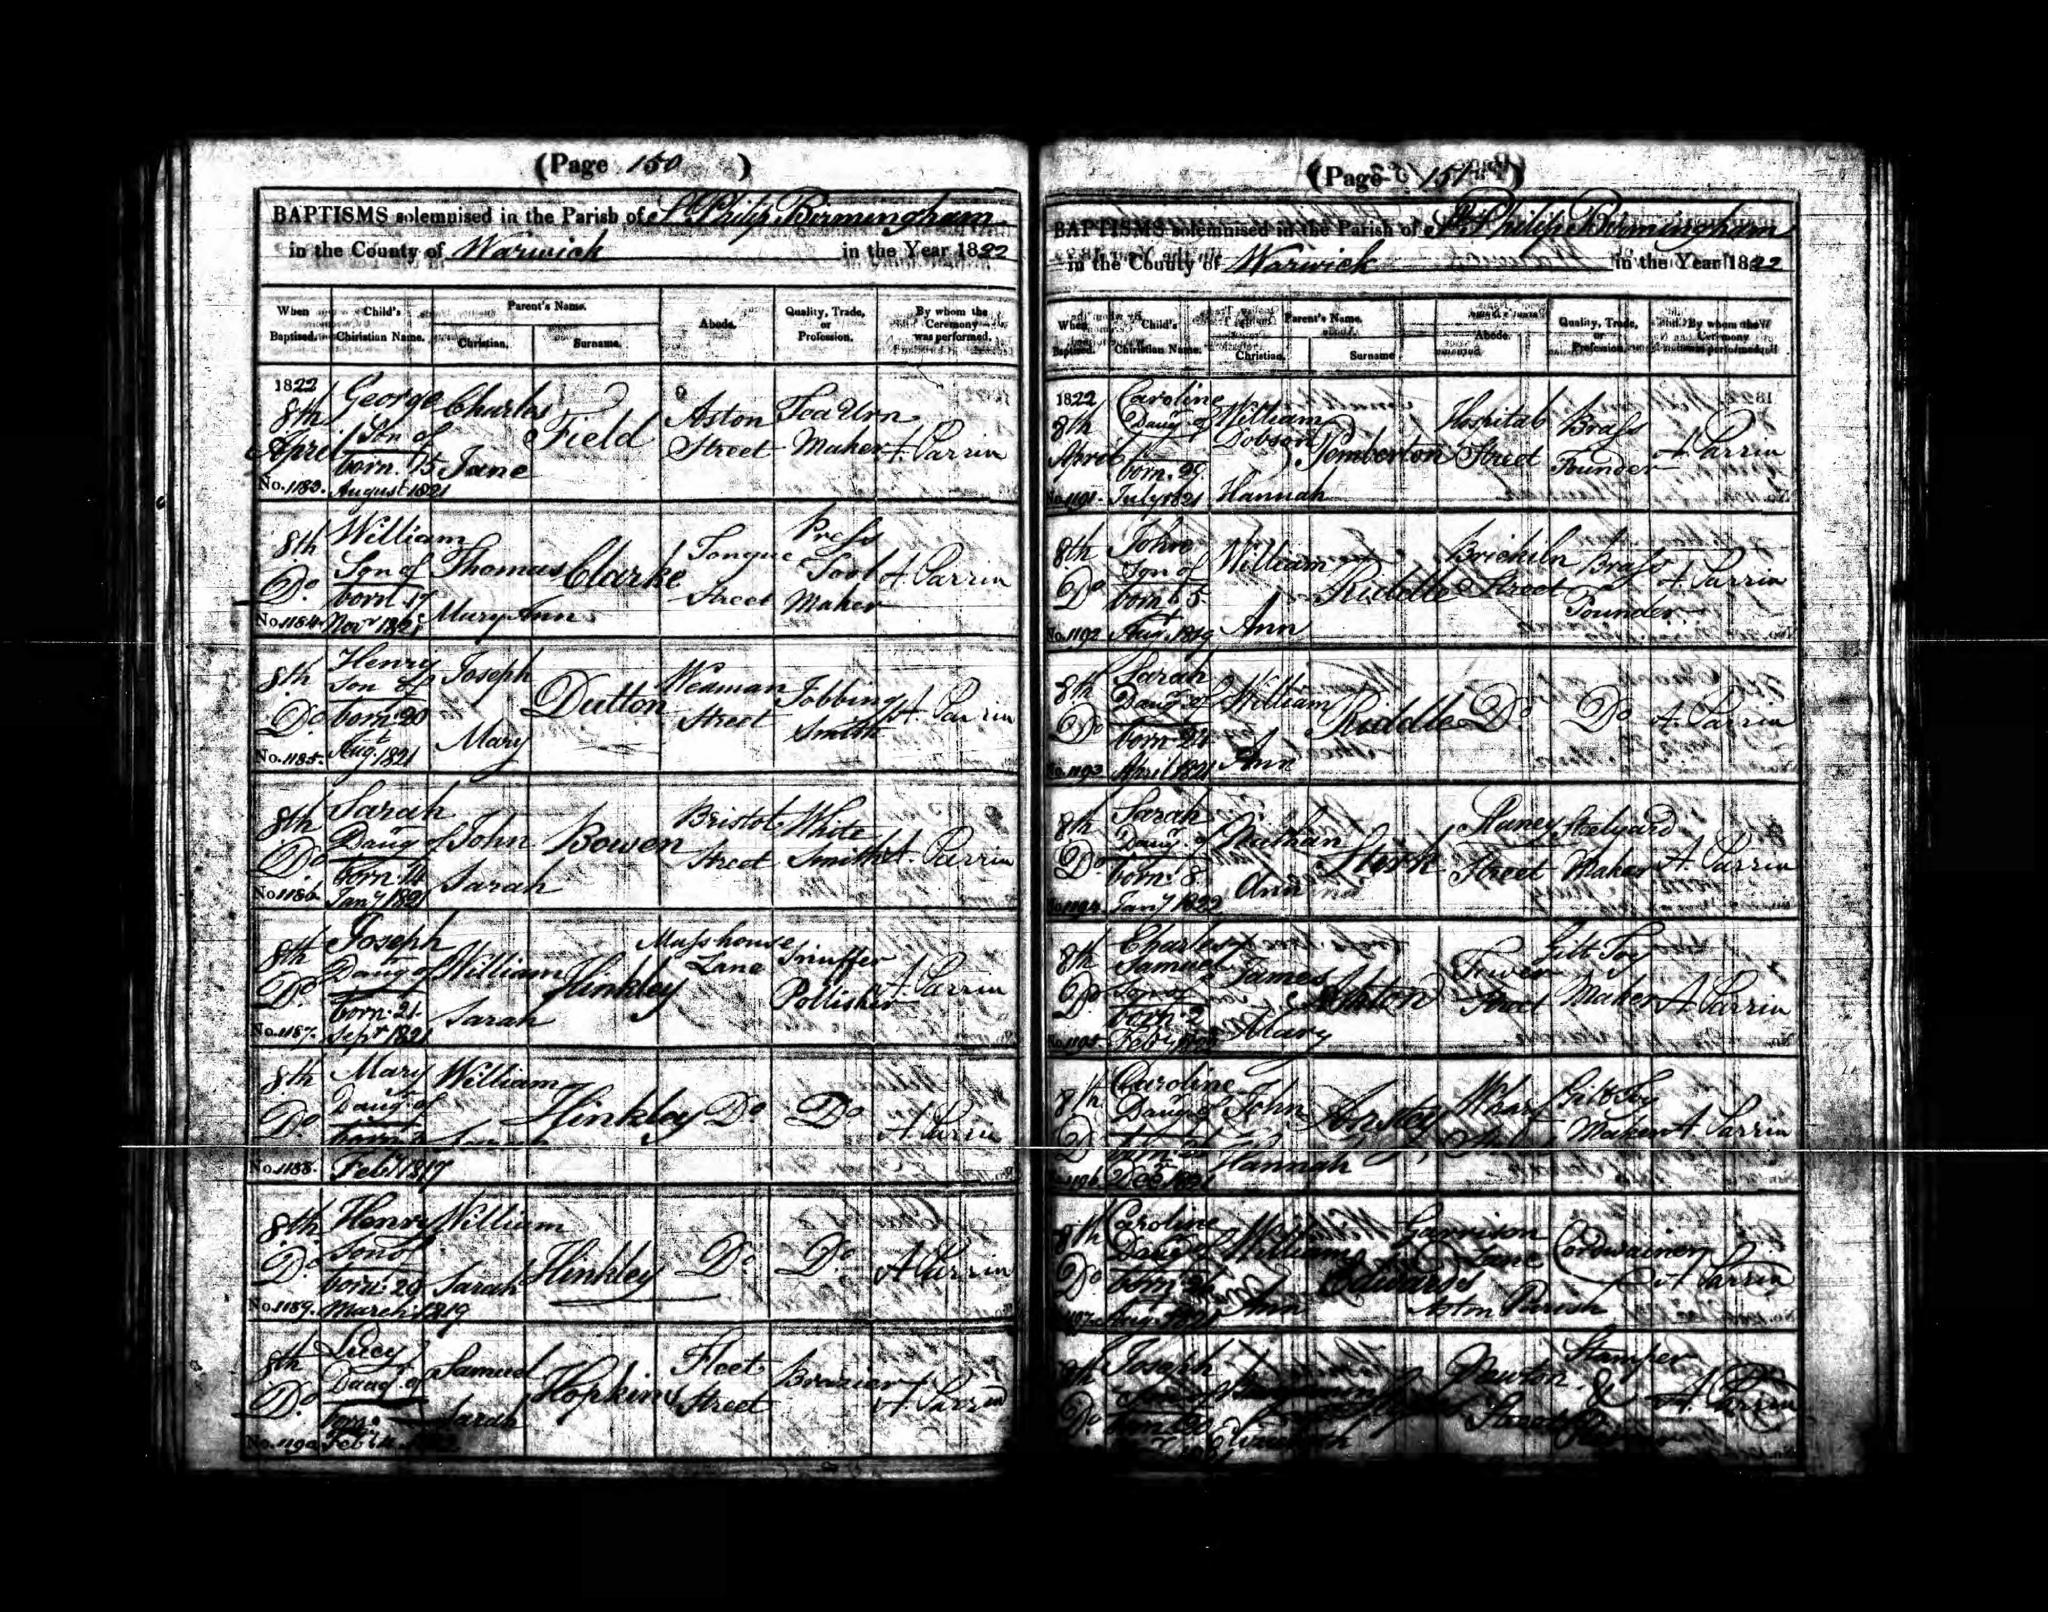 (Page 150)
BAPTISMS solemnised in the Parish of St. Philip Birmingham
in the County of Warwick in the Year 1822
When Baptised. Child's Christian Name. Parent's Name. Christian. Surname. Abode. Quality, Trade, or Profession. By whom the Ceremony was performed.
1822
8th April
No. 1183.
George
Son of
born. 15
August 1821
Charles
Jane
Field
Aston
Street
Tea Urn
Maker
A. Parrin
8th
Do.
No. 1184.
William
Son of
born. 17
Novr 1821
Thomas
Mary Ann
Clarke
Tongue
Street
Press
Tool
Maker
A. Parrin
8th
Do.
No. 1185.
Henry
Son of
born. 20
Augt 1821
Joseph
Mary
Dutton
Weaman
Street
Jobbing
Smith
A. Parrin
8th
Do.
No. 1186.
Sarah
Daugr of
born. 14
Jany 1821
John
Sarah
Bowen
Bristol
Street
White
Smith
A. Parrin
8th
Do.
No. 1187.
Joseph
Daugr of
born. 21.
Sepr 1821
William
Sarah
Hinkley
Masshouse
Lane
Snuffer
Pollisher
A. Parrin
8th
Do.
No. 1188.
Mary
Daugr of
born
Feby 1817
William
Hinkley
Do.
Do.
A. Parrin
8th
Do.
No. 1189.
Henry
Son of
born. 29
March. 1819
William
Sarah
Hinkley
Do.
Do.
A Parrin
8th
Do.
No. 1190
Lucy
Daugr of
born.
Feby
Samuel
Sarah
Hopkins
Fleet
Street
Brazier
A. Parrin
(Page 151)
BAPTISMS solemnised in the Parish of St. Philip Birmingham
in the County of Warwick in the Year 1822
When Baptised. Child's Christian Name. Parent's Name. Christian. Surname Abode. Quality, Trade, or Profession. By whom the Ceremony was performed.
1822
8th
April
No. 1191.
Caroline
Daugr of
born. 29.
July 1821
William
Dobson
Hannah
Pemberton
Hospital
Street
Brass
Founder
A Parrin
8th
Do
No. 1192
John
Son of
born. 5.
1819
William
Ann
Riddle
Brickiln
Street
Brass
Founder
A. Parrin
8th
Do
No. 1193
Sarah
Daugr of
born
April 1821
William
Ann
Riddle
Do
Do
A. Parrin
8th
Do
No. 1194
Sarah
Daugr of
born. 8.
Jany 1822
Nathan
Ann
Stork
Slaney
Street
Steelyard
Maker
A. Parrin
8th
Do
No. 1195.
Charles
Samuel
Son of
born. 2
Feby
James
Mary
Ashton
Tower
Street
Gilt Toy
Maker
A Parrin
8th
1196
Caroline
Daugr of
Decr 1821
John
Hannah
Ansley
Wharf
Gilt Toy
Maker
A. Parrin
8th
Do
Caroline
Daugr of
born
Augt 1821
William
Ann
Edwards
Garrison
Lane
Aston Parish
Cordwainer
A Parrin
8th
Do.
Joseph
Newton
Street
Stamper
&
A. Parrin